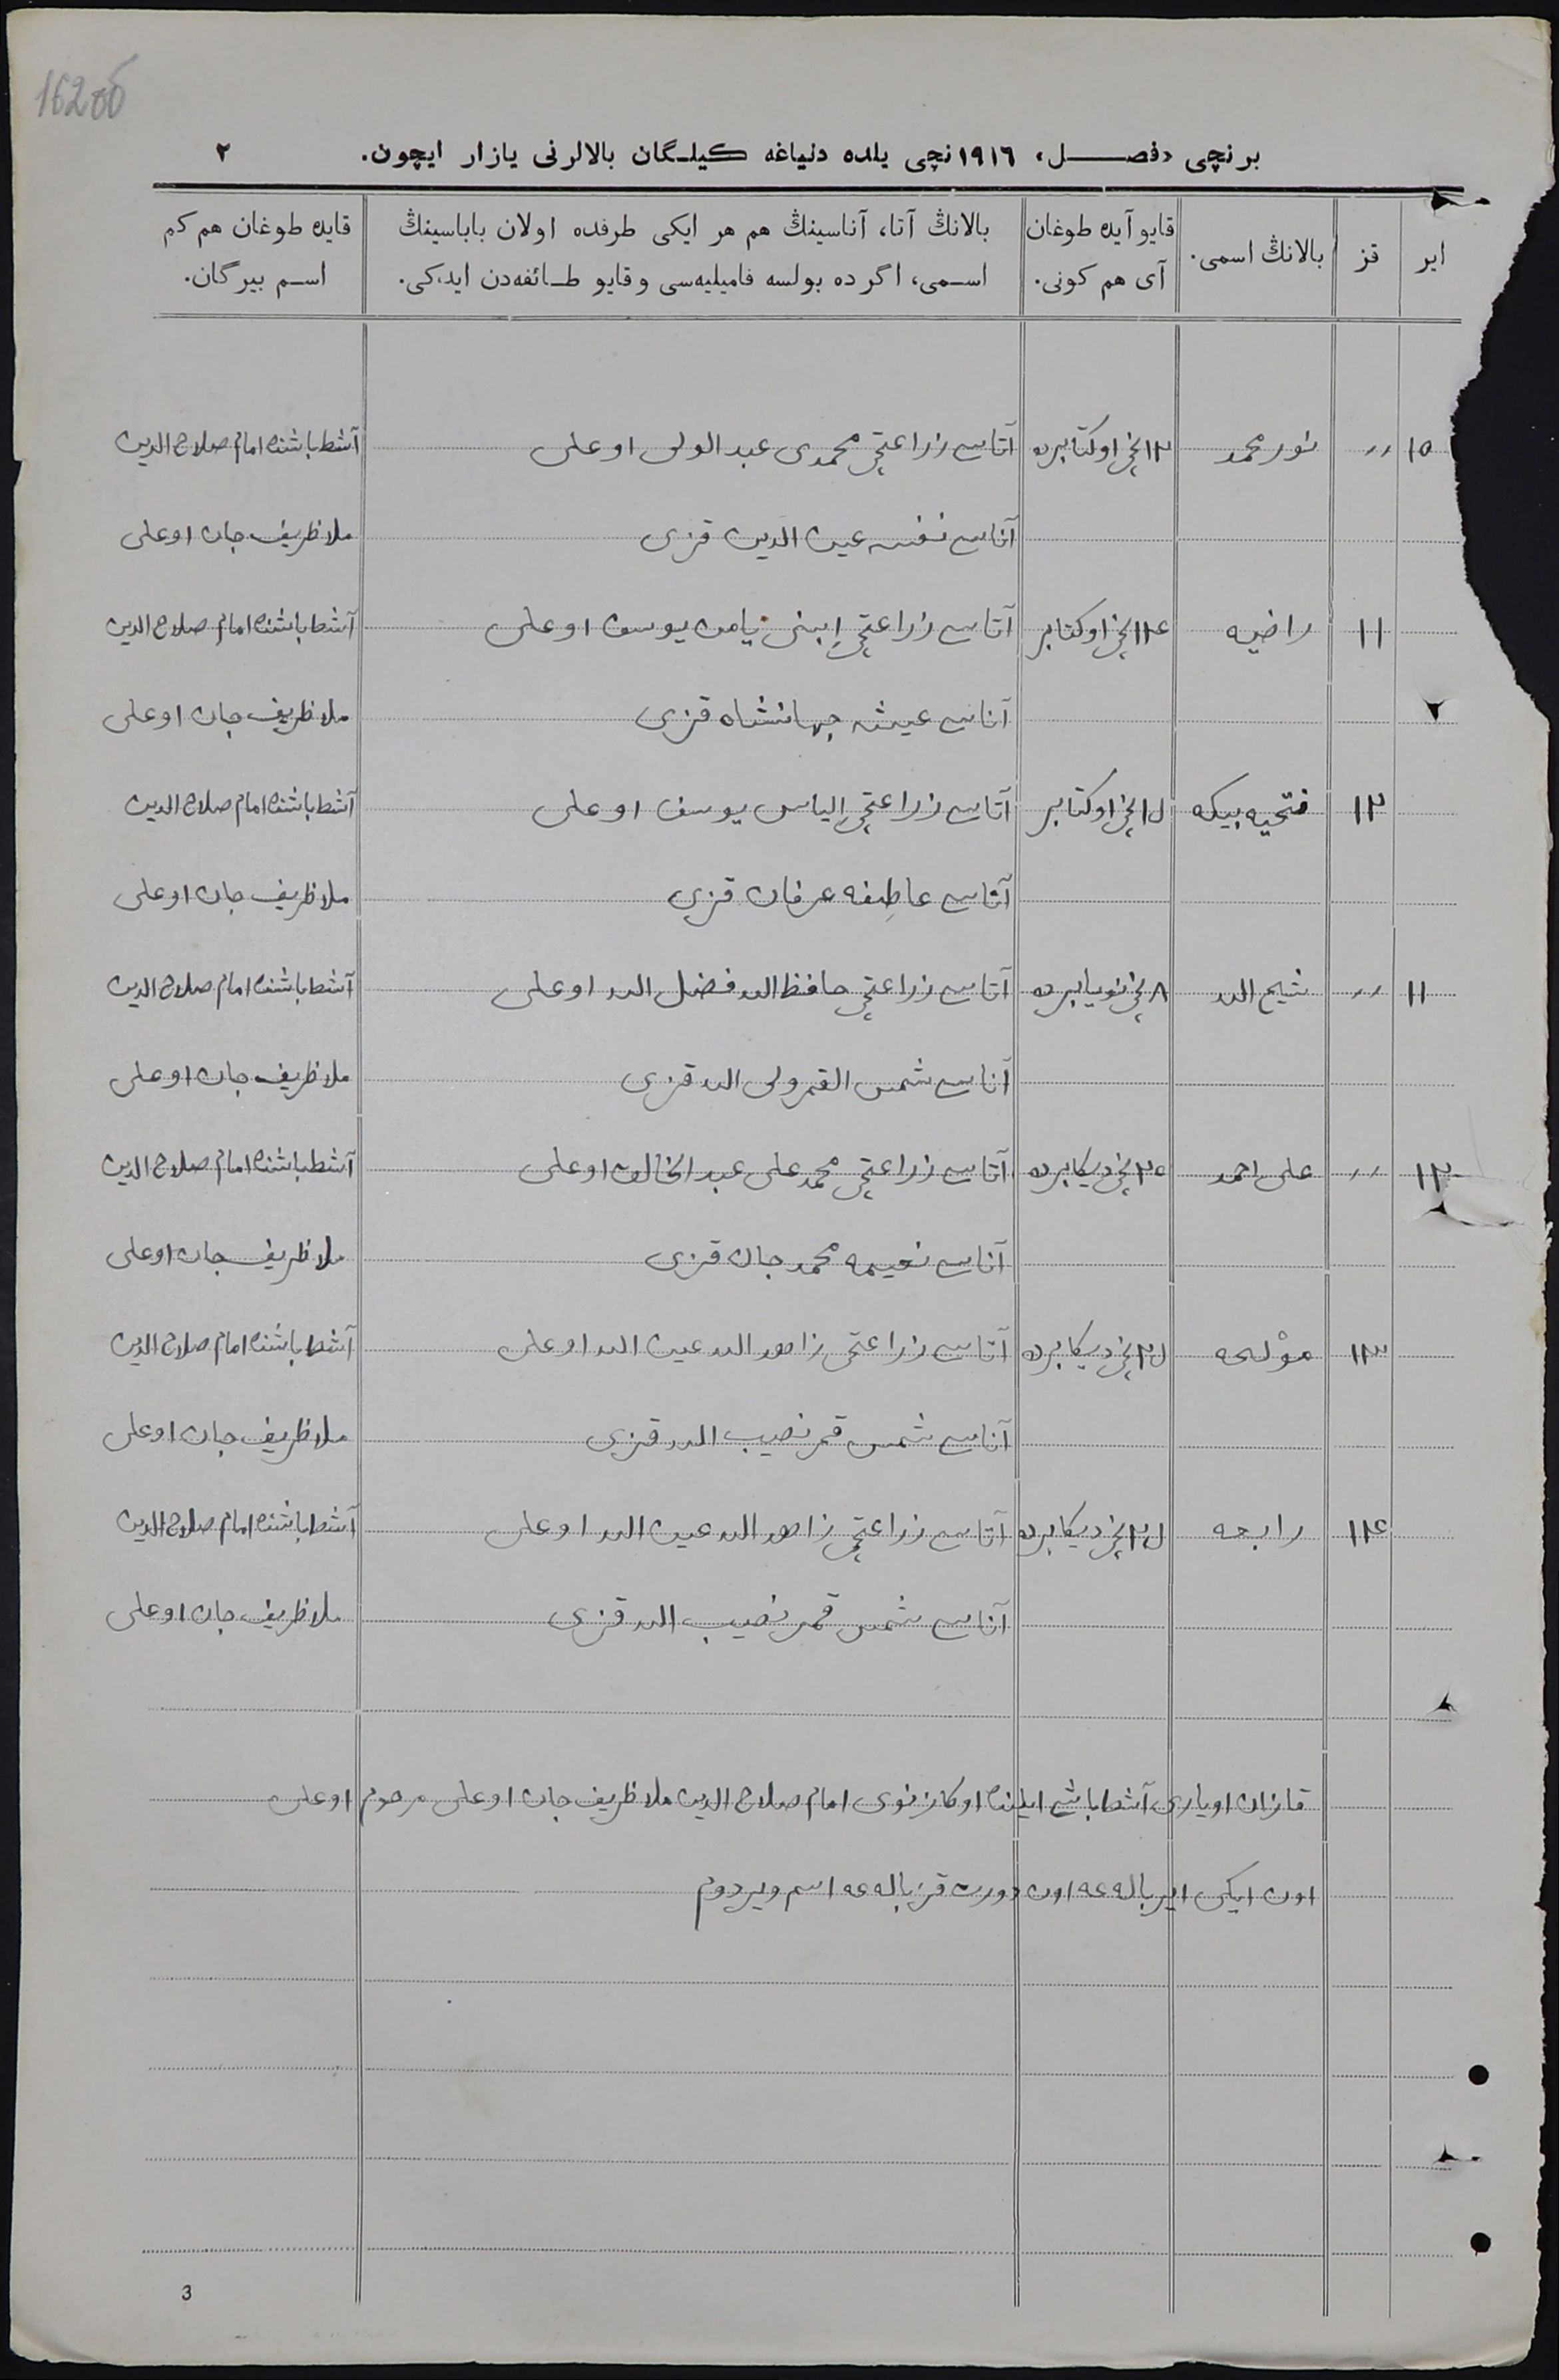 162об
برنچی «فصل» ١٩١٦نچی یلده دنیاغه کیلگان بالالرنی یازار ایچون. ٢
ایر
قز
بالانڭ اسمی.
قایو آیده طوغان
آی هم کونی.
بالانڭ آتا، آناسینڭ هم هر ایکی طرفده اولان باباسینڭ
اسمی، اگرده بولسه فامیلیه‌سی و قایو طائفه‌دن ایدکی.
قایده طوغان هم کم
اسم بیرگان.
١٥ ,, نور محمد ١٢نچی اوکتابرده آتاسی زراعتچی محمدی عبد الولی اوغلی آشطباشنده امام صلاح الدین
آناسی نفیسه عین الدین قزی ملا ظریف جان اوغلی
١١ راضیه ١٤نچی اوکتابر آتاسی زراعتچی إبنی یامین یوسف اوغلی آشطباشنده امام صلاح الدین
آناسی عیشه جهانشاه قزی ملا ظریف جان اوغلی
١٢ فتحیه بیکه نچی اوکتابر آتاسی زراعتچی الیاس یوسف اوغلی آشطباشنده امام صلاح الدین
آناسی عاطفه عرفان قزی ملا ظریف جان اوغلی
١١ ,, شیخ الله ٨نچی نویابرده آتاسی زراعتچی حافظ الله فضل الله اوغلی آشطباشنده امام صلاح الدین
آناسی شمس القمر ولی الله قزی ملا ظریف جان اوغلی
١٢ ,, علی احمد ٢٥نچی دیکابرده آتاسی زراعتچی محمد علی عبد الخالق اوغلی آشطباشنده امام صلاح الدین
آناسی نعیمه محمد جان قزی ملا ظریف جان اوغلی
١٣ نچی دیکابرده آتاسی زراعتچی زاهد الله عین الله اوغلی آشطباشنده امام صلاح الدین
آناسی شمس قمر نصیب الله قزی ملا ظریف جان اوغلی
١٤ رابعه نچی دیکابرده آتاسی زراعتچی زاهد الله عین الله اوغلی آشطباشنده امام صلاح الدین
آناسی شمس قمر نصیب الله قزی ملا ظریف جان اوغلی
قازان اویازی آشطباشی ایلنده اوکازنوی امام صلاح الدین ملا ظریف جان اوغلی مرحوم اوغلی
اون ایکی ایر باله‌غه اون دورت قز باله‌غه اسم ویردوم
3